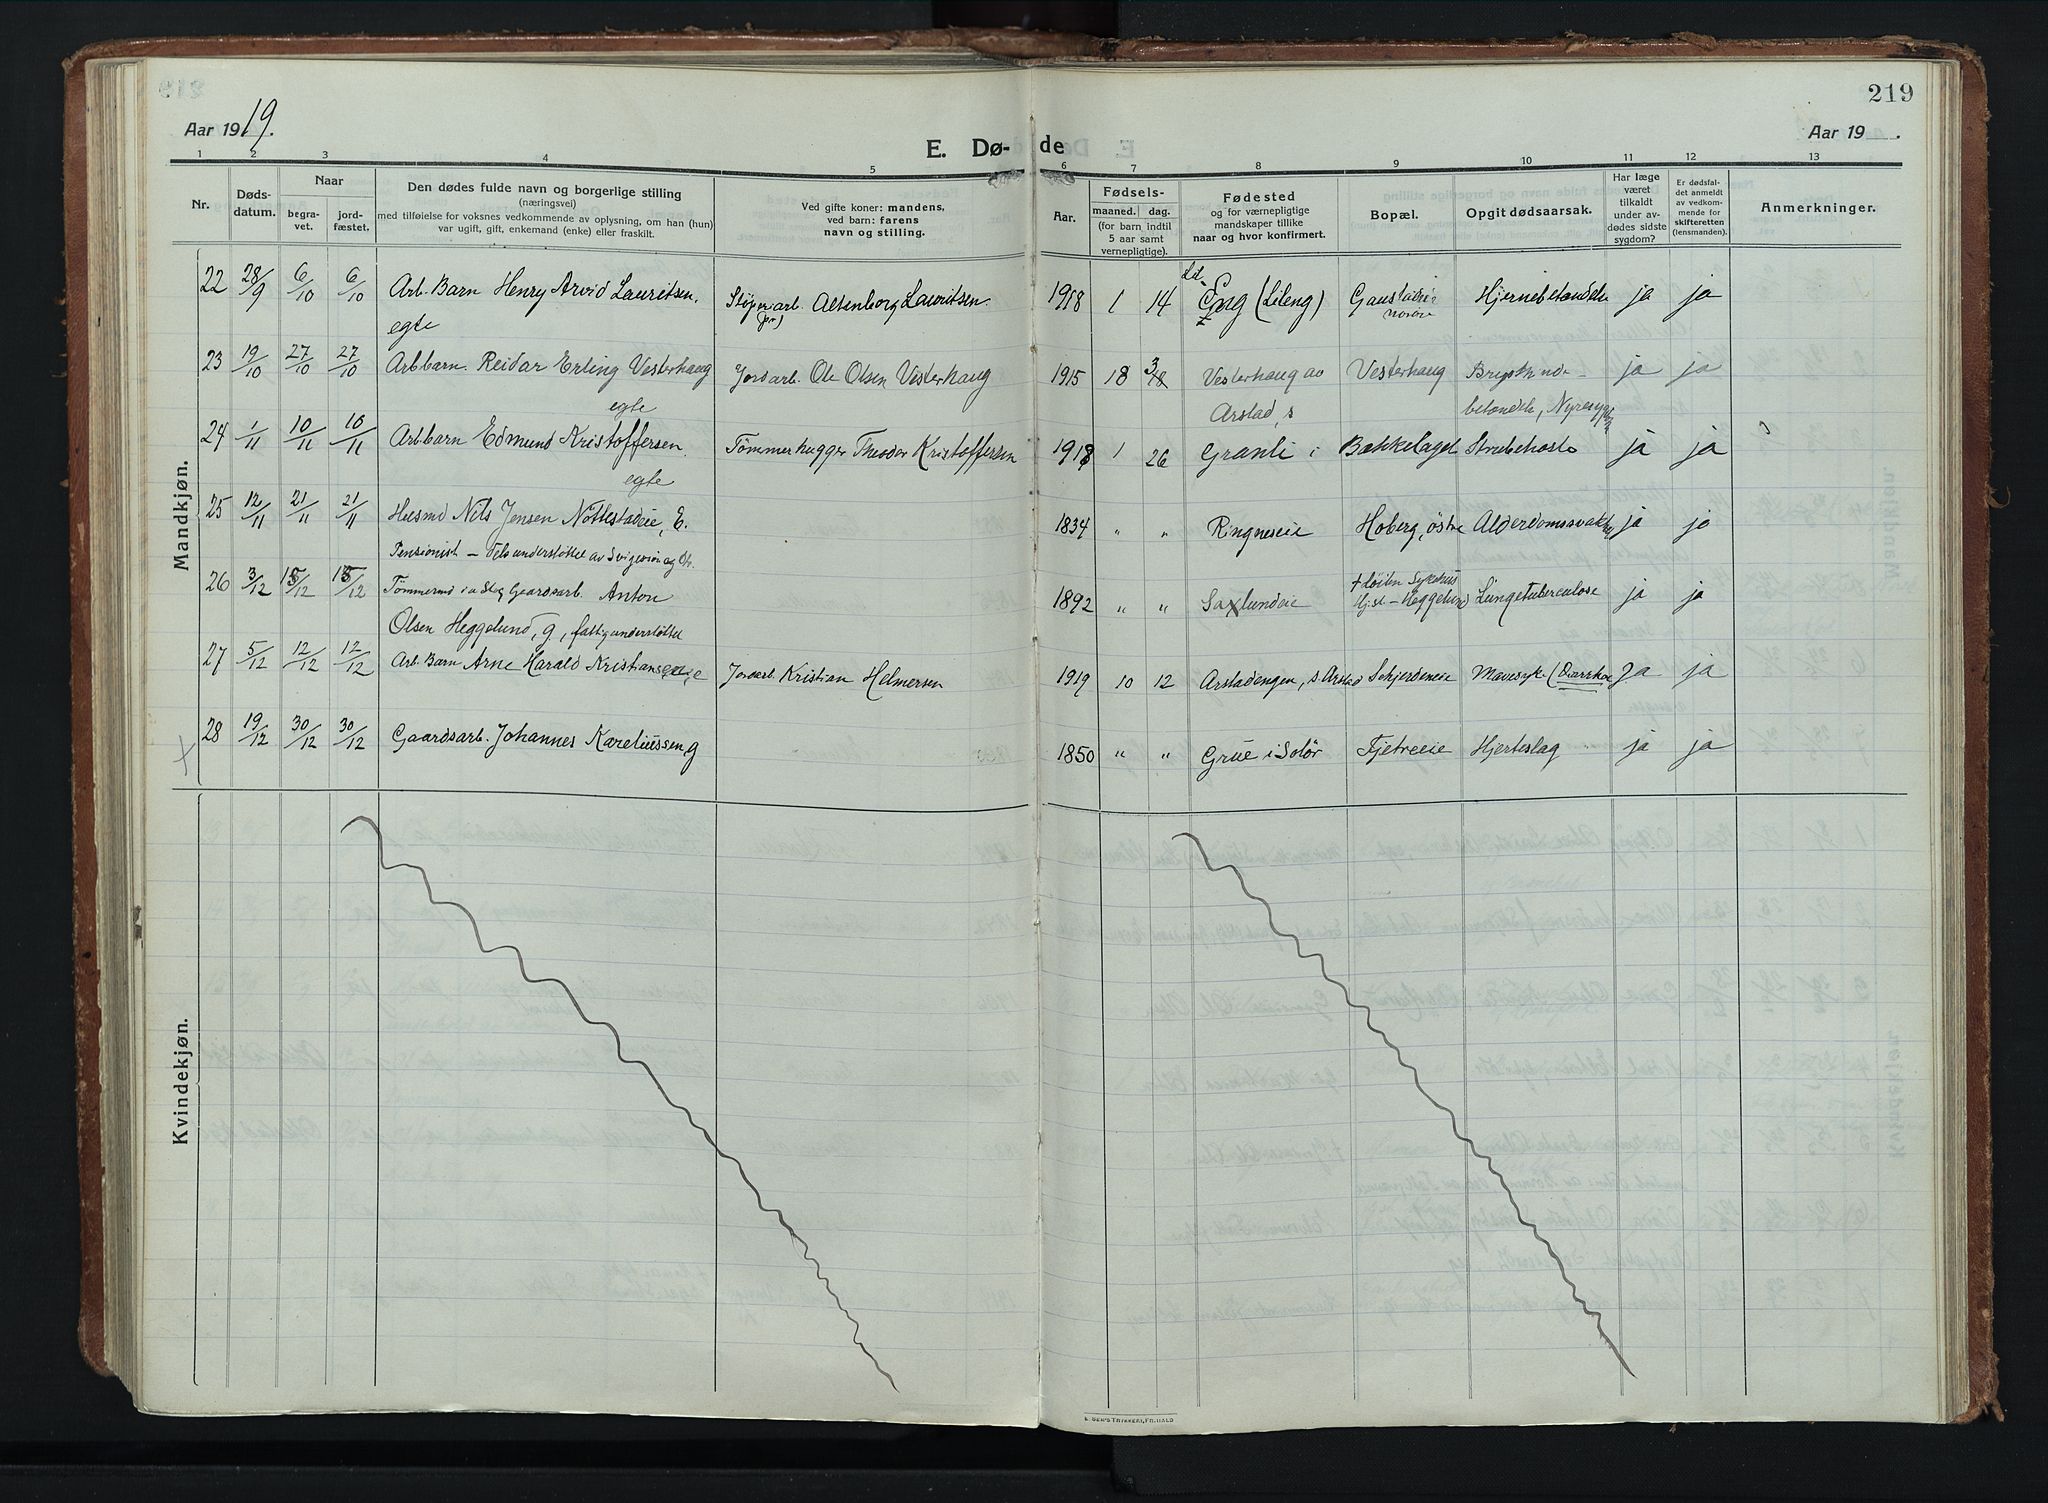 219
Aar 1919.
Aar 19 .
E. Dø-de
1 2 3 4 5 6 7 8 9 10 11 12 13
Nr.
Døds-
datum.
Naar
begra-
vet.
jord-
fæstet.
Den dødes fulde navn og borgerlige stilling
(næringsvei)
med tilføielse for voksnes vedkommende av oplysning, om han (hun)
var ugift, gift, enkemand (enke) eller fraskilt.
Ved gifte koner: mandens,
ved barn: farens
navn og stilling.
Aar.
Fødsels-
maaned. dag.
(for barn indtil
5 aar samt
vernepligtige).
Fødested
og for værnepligtige
mandskaper tillike
naar og hvor konfirmert.
Bopæl.
Opgit dødsaarsak.
Har læge
været
tilkaldt
under av-
dødes sidste
sygdom?
Er dødsfal-
det anmeldt
av vedkom-
mende for
skifteretten
(lensmanden).
Anmerkninger.
Mandkjøn.
22 28/9 6/10 6/10 Arb. Barn Henry Arvid Lauritsen, arb. Altenborg Lauritsen. 1918 1 14 Eng (Lileng) Hjernebetændelse ja ja
egte
23 19/10 27/10 27/10 Arb barn. Reidar Erling Vesterhaug Jordarb. Ole Olsen Vesterhaug 1915 18 3 Vesterhaug av Vesterhaug ja ja
egte Arstad, s betændelse, Nyresyg
24 1/11 10/11 10/11 Arb barn Edmund Kristoffersen Tømmerhugger Theodor Kristoffersen 1918 1 26 Granli i Bakkelaget Strubehoste ja ja
egte
25 12/11 21/11 21/11 Husmd Nils Jensen Nøttestadeie, E. 1834 " " Ringneseie Hoberg, østre Alderdomssvakhet ja ja
Pensionist – understøttet av Svigersøn og
26 3/12 15/12 15/12 Gaardsarb. Anton 1892 " " Saxlundeie + Løiten Sykehus Lungetuberculose ja ja
Heggelund
Olsen Heggelund, g, fattigunderstøttet
27 5/12 12/12 12/12 Arb. Barn Arne Harald Kristiansen Jordarb. Kristian Helmersen 1919 10 12 Arstadengen, s. Arstad Skjerdeneie Mavesyke ja ja
28 19/12 30/12 30/12 Gaardsarb. Johannes Kareliussen, g 1850 " " Grue i Solør Fjetreeie Hjerteslag ja ja
Kvindekjøn.